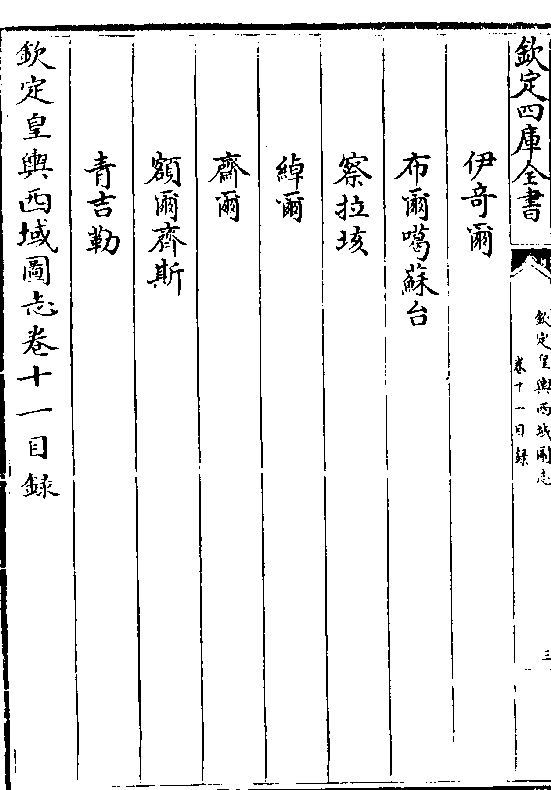 欽定四庫全書
欽定皇輿西域圖志
卷十一目録
三
伊竒爾
布爾噶蘇台
察拉垓
綽爾
齋爾
額爾齊斯
青吉勒
欽定皇輿西域圖志卷十一目録